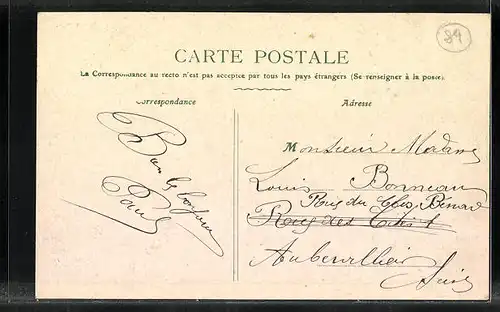 84
CARTE POSTALE
La Correspondance au recto n'est pas acceptée par tous les pays étrangers (Se renseigner à la poste)
orrespondance
Adresse
Bon
Paul
Monsieur Madame
Louis Bonneau
Rue du Clos Bénard
Rue des Cités
Aubervilliers
Seine